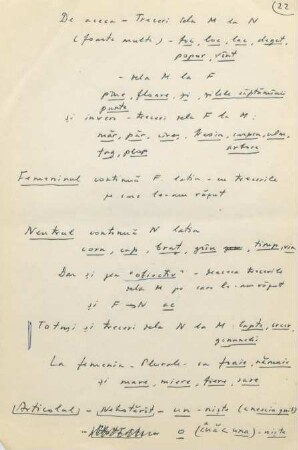 22
De aceea - Treceri dela M la N
(foarte multe) - foc, loc, lac, deget,
popor, vînt
- dela M la F
pîine, floare, zilele săptămînii
punte
și invers - treceri dela F la M:
măr, păr, arbore
fag, plop
Femeninul continuă F latin - cu trecerile
pe care le-am văzut
Neutrul continuă N latin
corn, cap, braț, grîu, timp, vin
Dar și pea "obiectiv" - deaceea trecerile
dela M pe care le-am văzut
și F → N ac
Totuși și treceri dela N la M: lapte,
genunchi
La femenin - Plurale - ca foaie,
și mare, miere, fiere, sare
Articolul - Nehotărît - un - niște
- o (una) - niște